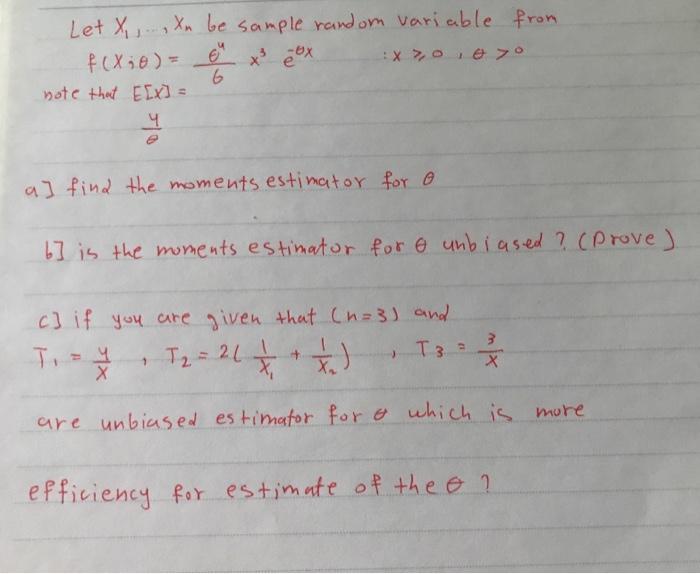 Let X₁, ..., Xn be sample random variable from
f(X;θ) = θ⁴/6 x³ e^-θx : x ≥ 0, θ > 0
note that E[X] =
4/θ
a] find the moments estimator for θ
b] is the moments estimator for θ unbiased? (prove)
c] if you are given that (n=3) and
T₁ = 4/X, T₂ = 2(1/X₁ + 1/X₂), T3 = 3/X
are unbiased estimator for θ which is more
efficiency for estimate of the θ?